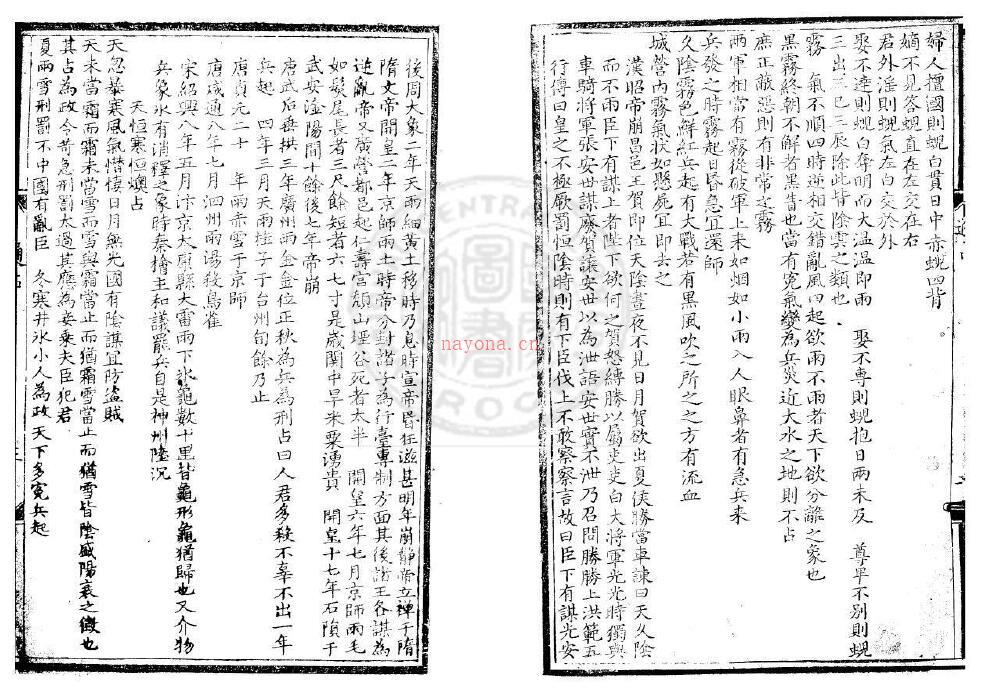 婦人擅國則蜺白貫日中赤蜺四背
嫡不見荅蜺直在左交在右
君外淫則蜺氣左白交於外
娶不達則蜺白奪明而大溫溫即雨　娶不專則蜺抱日兩未及　尊卑不別則蜺
三出三巳三辰除此皆陰雲之類也
霧　氣不順四時逆相交錯亂風四起欲雨不雨者天下欲分離之象也
黑霧終朝不解者黑眚也當有寃氣變為兵災近大水之地則不占
庶正蔽惡則有非常之霧
兩軍相當有霧從破軍上來如烟如小雨入人眼鼻者有急兵来
兵發之時霧起日昏急宜還師
久陰霧色鮮紅兵起有大戰若有黑風吹之所之之方有流血
城營內霧氣狀如懸屍宜即去之
漢昭帝崩昌邑王賀即位天陰晝夜不見日月賀欲出夏侯勝當車諫曰天久陰
而不雨臣下有謀上者陛下欲何之賀怒縛勝以屬吏吏白大將軍光光時獨與
車騎將軍張安世謀廢賀讓安世以為泄語安世實不泄乃召問勝勝上洪範五
行傳曰皇之不極厥罰恒陰時則有下臣伐上不敢察察言故曰臣下有謀光安
後周大象二年天雨細黃土移時乃息時宣帝昏狂滋甚明年崩靜帝立禅于隋
隋文帝開皇二年京師雨土時帝分封諸子為行臺專制方面其後諸王各謀為
逆亂帝又廣營都邑起仁壽宮頹山堙谷死者太半　開皇六年七月京師雨毛
如髮尾長者三尺餘短者六七寸是歲關中旱米粟湧貴　開皇十七年石隕于
武安滏陽間十餘後七年帝崩
唐武后垂拱三年廣州雨金金位正秋為兵為刑占曰人君多殺不辜不出一年
兵起　四年三月天雨桂子于台州旬餘乃止
唐貞元二十　年雨赤雪于京師
唐咸通八年七月泗州雨湯殺鳥雀
宋紹興八年五月汴京太康縣大雷雨下氷龜數十里皆龜形龜猶歸也又介物
兵象氷有消釋之象時秦檜主和議罷兵自是神州陸沉
天恒寒恒燠占
天忽暴寒風氣憯悽日月無光國有陰謀宜防盗賊
天未當霜而霜未當雪而雪與霜當止而猶霜雪當止而猶雪皆陰盛陽衰之徵也
其占為政令苛急刑罰太過其應為妾乘夫臣犯君
夏雨雪刑罰不中國有亂臣　冬寒井氷小人為政天下多寃兵起
nayona.cn